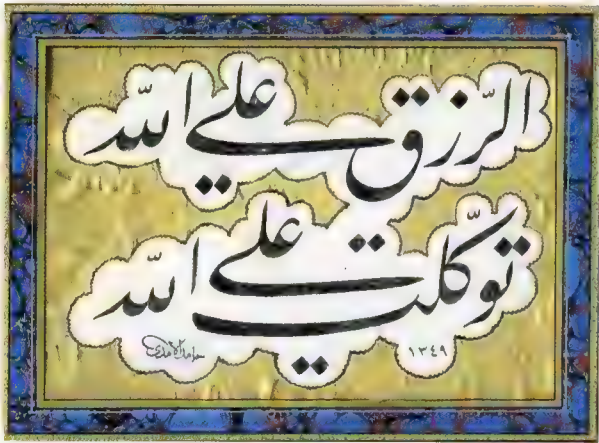 الرّزق علي اللّه
توكّلت علي اللّه
حامد الآمدي ١٣٤٩